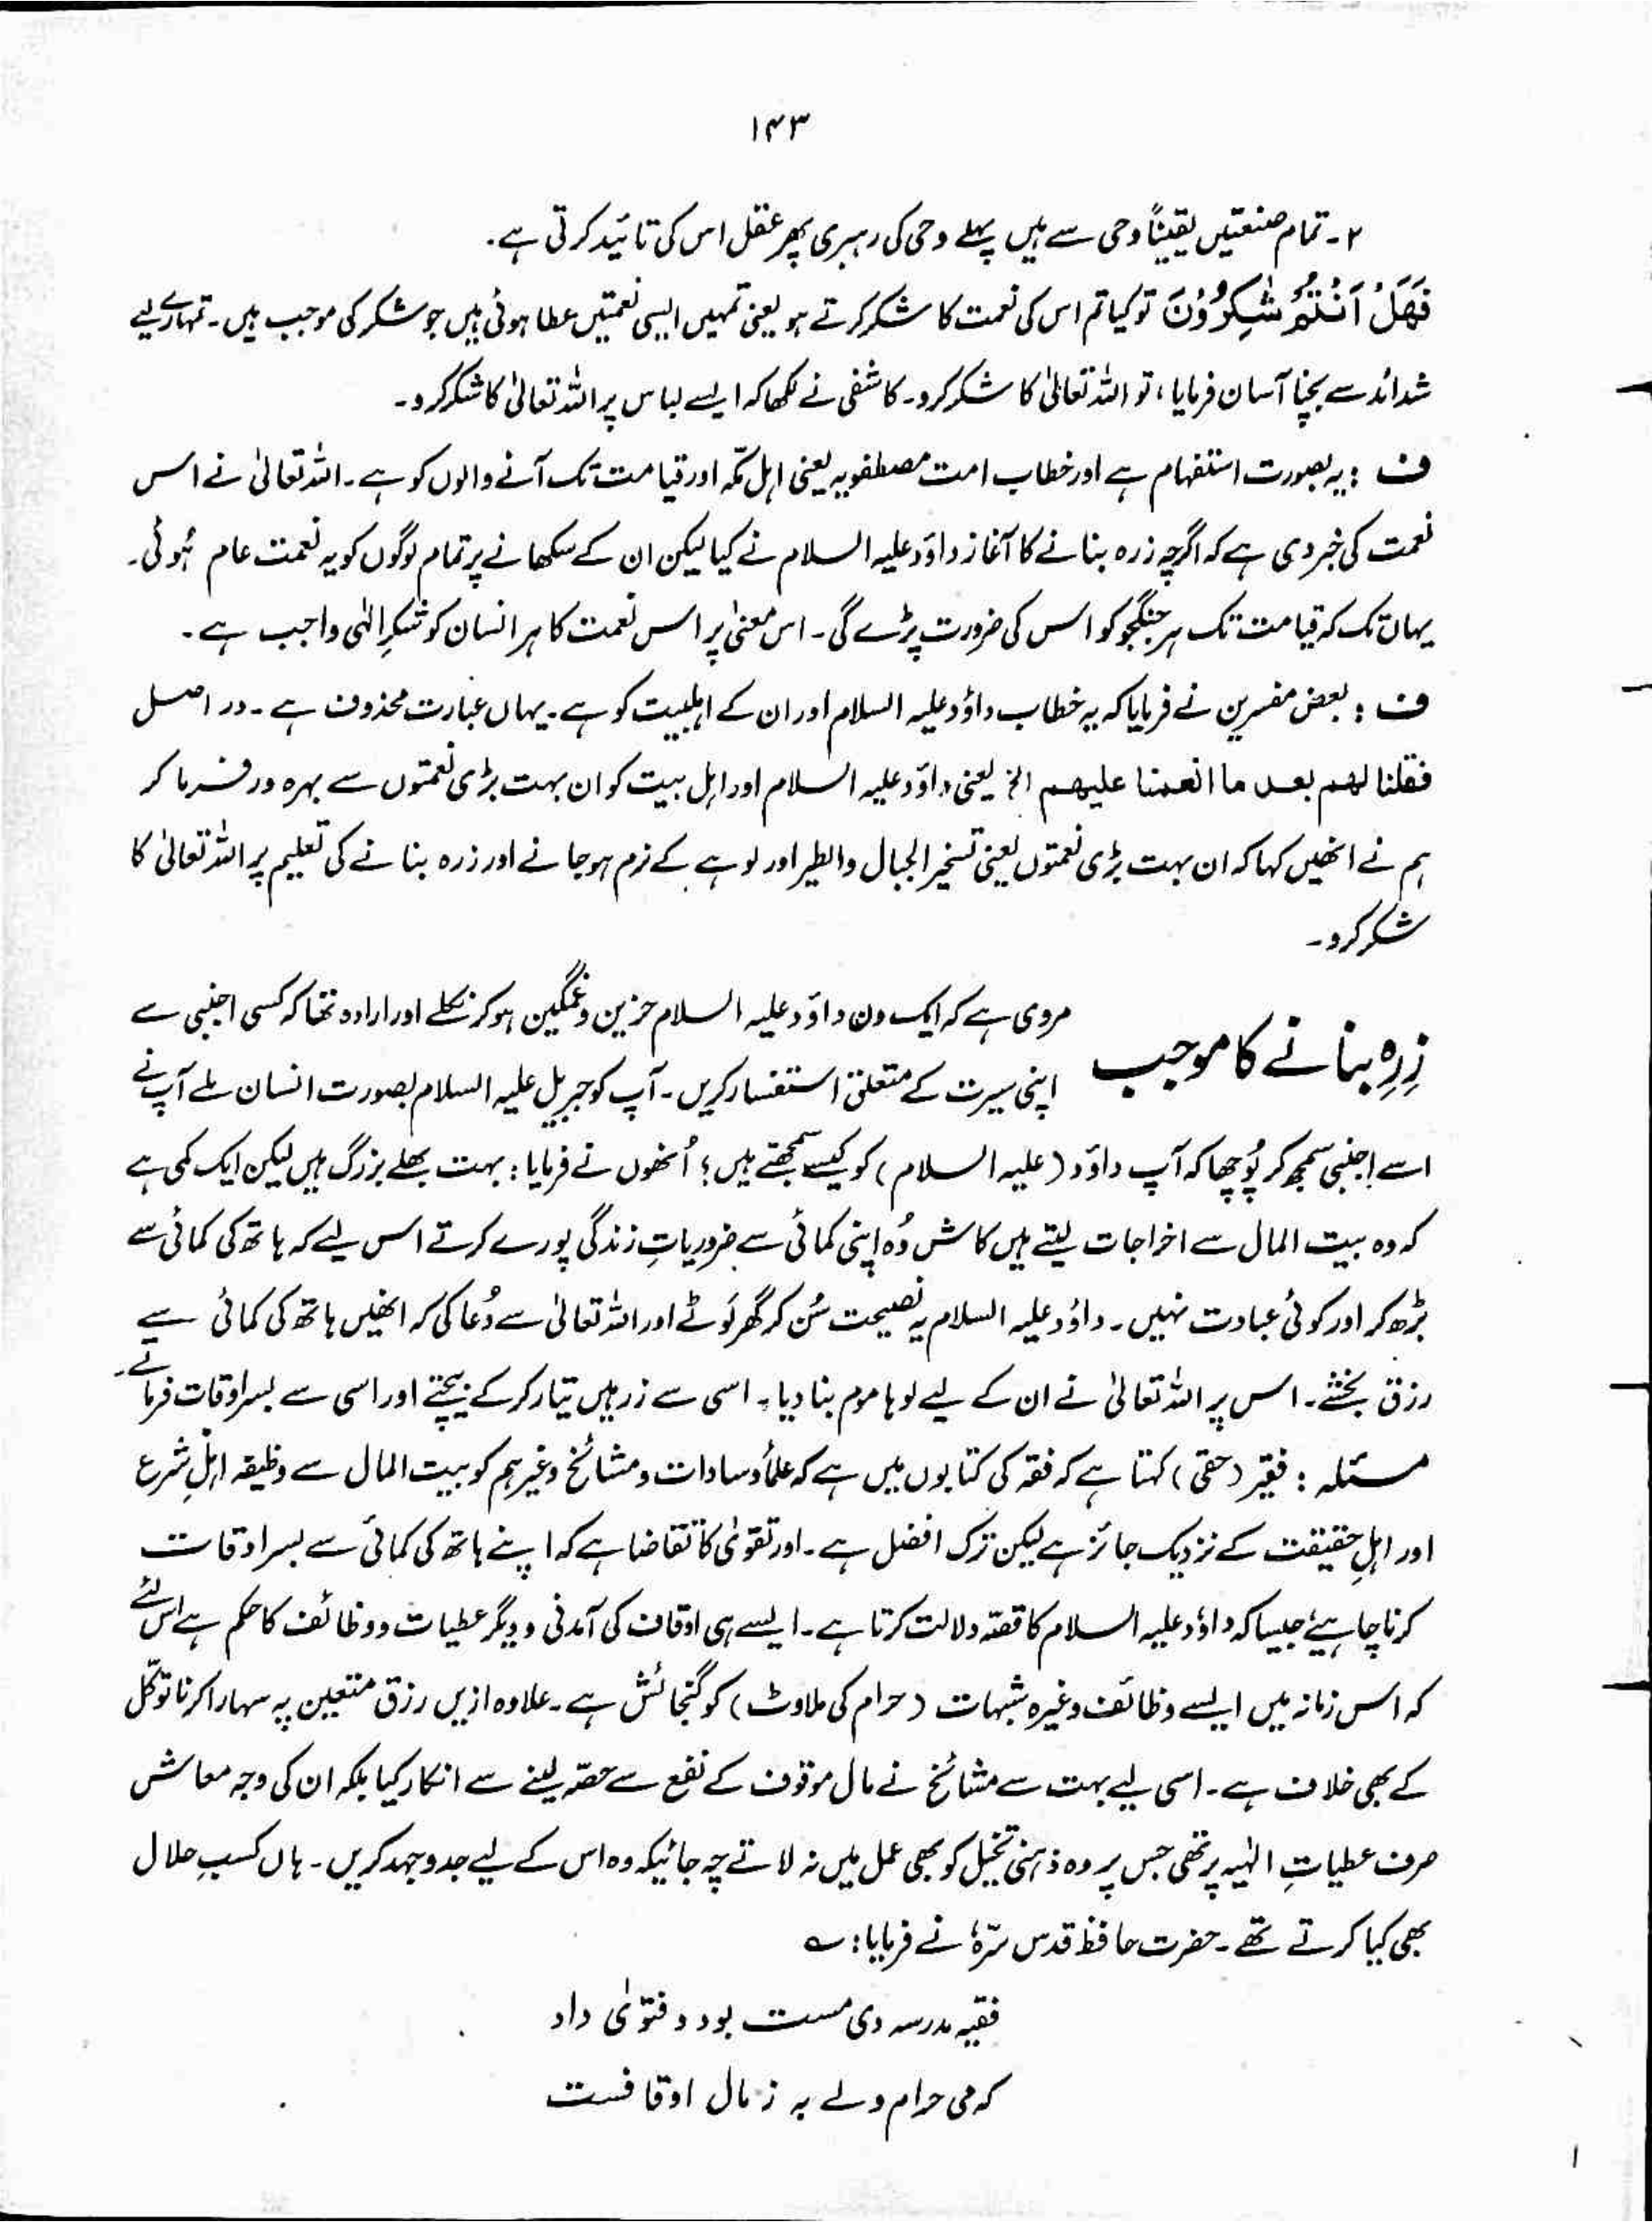 ۱۴۳
۲۔ تمام صنعتیں یقیناً وحی سے ہیں پہلے وحی کی رہبری پھر عقل اس کی تائید کرتی ہے۔
فَهَلْ اَنْتُمْ شٰكِرُوْنَ تو کیا تم اس کی نعمت کا شکر کرتے ہو یعنی تمہیں ایسی نعمتیں عطا ہوئی ہیں جو شکر کی موجب ہیں۔ تمہارے لیے
شدائد سے بچنا آسان فرمایا، تو اللہ تعالیٰ کا شکر کرو۔ کاشفی نے لکھا کہ ایسے لباس پر اللہ تعالیٰ کا شکر کرو۔
ف : یہ بصورت استفہام ہے اور خطاب امت مصطفویہ یعنی اہل مکّہ اور قیامت تک آنے والوں کو ہے۔ اللہ تعالیٰ نے اس
نعمت کی خبر دی ہے کہ اگرچہ زرہ بنانے کا آغاز داؤد علیہ السلام نے کیا لیکن ان کے سکھانے پر تمام لوگوں کو یہ نعمت عام ہُوئی۔
یہاں تک کہ قیامت تک ہر جنگجو کو اس کی ضرورت پڑے گی۔ اس معنیٰ پر اس نعمت کا ہر انسان کو شکرِ الٰہی واجب ہے۔
ف : بعض مفسرین نے فرمایا کہ یہ خطاب داؤد علیہ السلام اور ان کے اہلبیت کو ہے۔ یہاں عبارت محذوف ہے۔ در اصل
فقلنا لهم بعد ما انعمنا علیهم الخ یعنی داؤد علیہ السلام اور اہل بیت کو ان بہت بڑی نعمتوں سے بہرہ ور فرما کر
ہم نے انھیں کہا کہ ان بہت بڑی نعمتوں یعنی تسخیر الجبال والطیر اور لوہے کے نرم ہوجانے اور زرہ بنانے کی تعلیم پر اللہ تعالیٰ کا
شکر کرو۔
زِرہِ بنانے کا موجب
مروی ہے کہ ایک دن داؤد علیہ السلام حزین و غمگین ہو کر نکلے اور ارادہ تھا کہ کسی اجنبی سے
اپنی سیرت کے متعلق استفسار کریں۔ آپ کو جبریل علیہ السلام بصورت انسان ملے آپ نے
اسے اجنبی سمجھ کر پُوچھا کہ آپ داؤد (علیہ السلام) کو کیسے سمجھتے ہیں؟ اُنھوں نے فرمایا: بہت بھلے بزرگ ہیں لیکن ایک کمی ہے
کہ وہ بیت المال سے اخراجات لیتے ہیں کاش وُہ اپنی کمائی سے ضروریاتِ زندگی پورے کرتے اس لیے کہ ہاتھ کی کمائی سے
بڑھ کر اور کوئی عبادت نہیں۔ داؤد علیہ السلام یہ نصیحت سُن کر گھر لَوٹے اور اللہ تعالیٰ سے دُعا کی کہ انھیں ہاتھ کی کمائی سے
رزق بخشے۔ اس پر اللہ تعالیٰ نے ان کے لیے لوہا موم بنا دیا۔ اسی سے زرہیں تیار کرکے بیچتے اور اسی سے بسر اوقات فرماتے۔
مسئلہ : فقیر (حقی) کہتا ہے کہ فقہ کی کتابوں میں ہے کہ علماً و سادات و مشائخ وغیرہم کو بیت المال سے وظیفہ اہلِ شرع
اور اہلِ حقیقت کے نزدیک جائز ہے لیکن ترک افضل ہے۔ اور تقویٰ کا تقاضا ہے کہ اپنے ہاتھ کی کمائی سے بسر اوقات
کرنا چاہیئے جیسا کہ داؤد علیہ السلام کا قصّہ دلالت کرتا ہے۔ ایسے ہی اوقاف کی آمدنی و دیگر عطیات و وظائف کا حکم ہے اس لئے
کہ اس زمانہ میں ایسے وظائف وغیرہ شبہات (حرام کی ملاوٹ) کو گنجائش ہے۔ علاوہ ازیں رزق متعین پہ سہارا کرنا توکّل
کے بھی خلاف ہے۔ اسی لیے بہت سے مشائخ نے مال موقوف کے نفع سے حصّہ لینے سے انکار کیا بلکہ ان کی وجہ معاش
صرف عطیاتِ الٰہیہ پر تھی جس پر وہ ذہنی تخیل کو بھی عمل میں نہ لاتے چہ جائیکہ وہ اس کے لیے جدوجہد کریں۔ ہاں کسبِ حلال
بھی کیا کرتے تھے۔ حضرت حافظ قدس سّرہٗ نے فرمایا: ؎
فقیہ مدرسہ دی مست بود و فتویٰ داد
کہ می حرام ولے بہ ز مال اوقافست